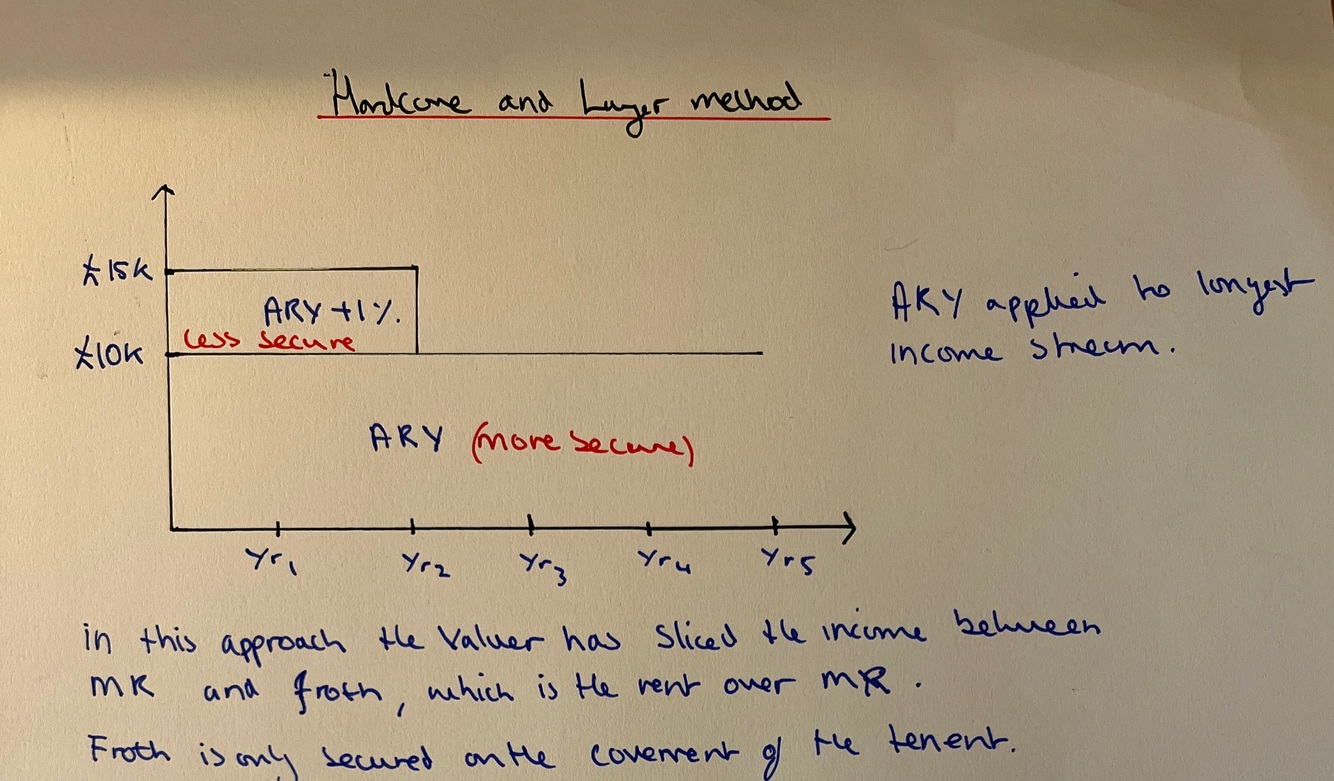 Hardcore and Layer method
£15k
ARY +1%.
less secure
£10k
ARY applied to longest
income stream.
ARY (more secure)
Yr1 Yr2 Yr3 Yr4 Yr5
in this approach the Valuer has Sliced the income between
MR and froth, which is the rent over MR.
Froth is only secured on the covernent of the tenent.